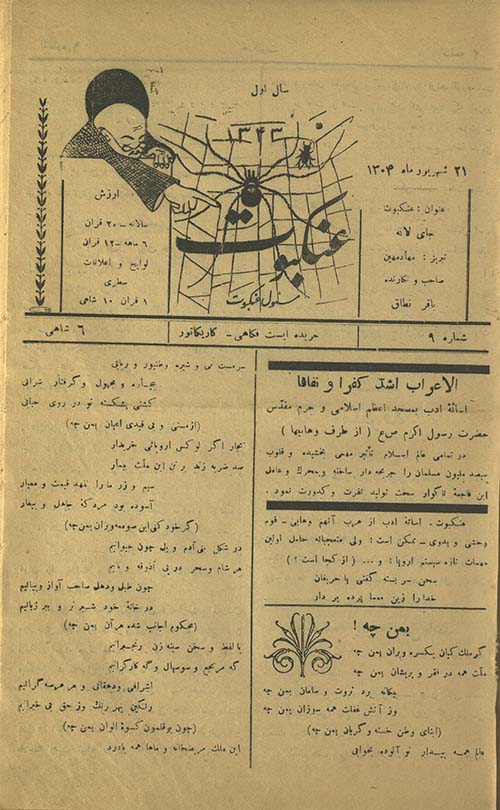 سال اول
۱۳۴۳
۲۱ شهریور ماه ۱۳۰۴
عنکبوت
مسئول عنکبوت
عنوان : عنکبوت
جای لانه
تبریز : مهادمهین
صاحب و نگارنده
باقر نطاق
ارزش
سالانه - ۲۰ قران
۶ ماهه - ۱۲ قران
لوایح و اعلانات
سطری
۱ قران ۱۰ شاهی
شماره ۹
جریده ایست فکاهی - کاریکاتور
۶ شاهی
الاعراب اشد کفرا و نفاقا
اسائۀ ادب بمسجد اعظم اسلامی و حرم مقدس
حضرت رسول اکرم صع ( از طرف وهابیها )
در تمامی عالم اسلام تأثیر مهمی بخشیده و قلوب
سیصد ملیون مسلمان را جریحه دار ساخته و محرک و عامل
این فاجعۀ ناگوار سخت تولید نفرت و کدورت نمود .
عنکبوت . اسائۀ ادب از عرب آنهم وهابی - قوم
وحشی و بدوی - ممکن است : ولی متعجبانه حامل اولین
مهمات تازه سیستم اروپا ! و ... ( از کجا است ؟ )
سخن سر بسته گفتی با حریفان
خدا را زین معما پرده بر دار
بمن چه !
گر ملک کیان یکسره ویران بمن چه
ملت همه در فقر و پریشان بمن چه
بیگانه برد ثروت و سامان بمن چه
وز آتش غفلت همه سوزان بمن چه
( ابنای وطن خسته و گریان بمن چه )
عالم همه بیدار تو آلوده بخوابی
سرمست می و شیره و طنبور و ربابی
بیچاره و مجهول و گرفتار شرابی
کشتی بشکسته تو در روی حبابی
( از مستی و بی قیدی اعیان بمن چه )
تجار اگر لوکس اروپائی خریدار
صد ضربه زند بر تن این ملت بیمار
سیم و زر ما را ندهد قیمت و معیار
آسوده بود مردکۀ جاهل و بیعار
( گر خود کنی این سومعه ویران بمن چه )
در شکل بنی آدم و یل چون حیوانیم
هر شام و سحر در پی
چون طبل و دهل صاحب آواز و بیانیم
در خانۀ خود شیر نر و ببر ژیانیم
( محکوم اجانب شده هر آن بمن چه )
با لفظ و سخن سینه زن رنجبرانیم
که مرتجع و سوسیال و گه کارگرانیم
اشرافی و دهقانی و هر عرصه گرانیم
رنگین بهر رنگ وز حق بی خبرانیم
( چون بوقلمون کسوۀ الوان بمن چه )
این ملک مریضخانه و ماها همه بادرد